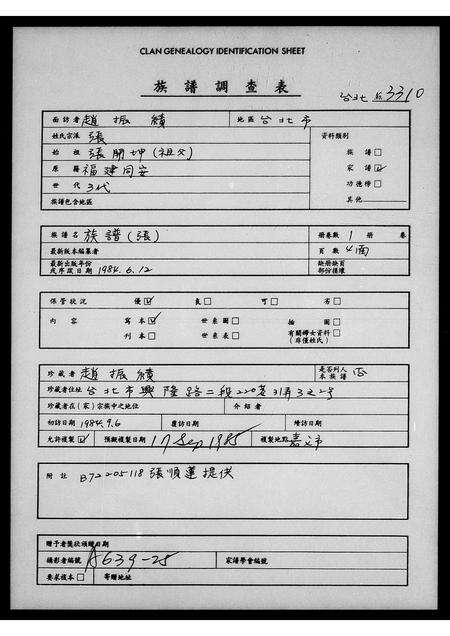 CLAN GENEALOGY IDENTIFICATION SHEET
族譜調查表
台北 № 3310
面訪者 趙振績 地區 台北市
姓氏宗派 張 資料類別
始祖 張朋坤(祖父) 族譜□
原籍 福建同安 家譜☑
世代 3代 功德榜□
族譜包含地區 其他
族譜名 族譜(張) 冊卷數 1 冊 卷
最新版本編纂者 頁數 4面
最新出版年份或序跋日期 1984.6.12 缺冊缺頁部份損壞
保管狀況 優☑ 良□ 可□ 劣□
內容 寫本☑ 世系圖□ 插圖□
刊本□ 世系表□ 有關婦女資料□(非僅姓氏)
珍藏者 趙振績 是否列入本族譜 否
珍藏者住址 台北市興隆路二段220巷31弄3之2号
珍藏者在(家)宗族中之地位 介紹者
初訪日期 1984.9.6 覆訪日期 隨訪日期
允許複製☑ 預擬複製日期 17 Sep 1985 複製地點 嘉义市
附註 B72205118 張順蓮提供
贈予者獎狀頒贈日期
攝影者編號 A639-25 家譜學會編號
要求複本□ 寄贈地址